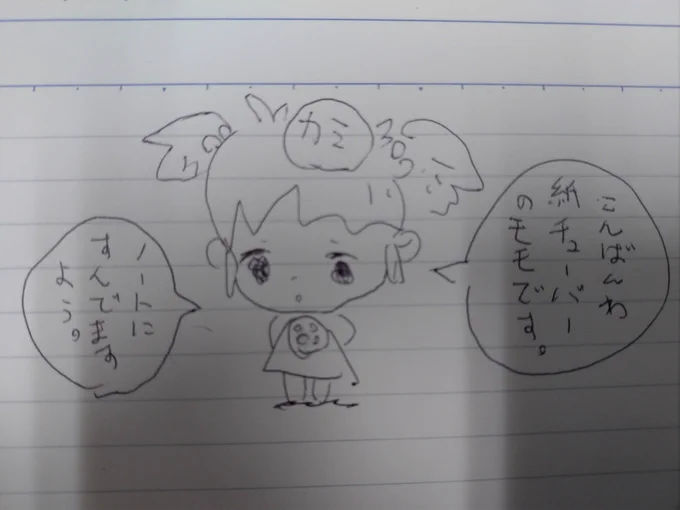 カミ
こんばんわ
紙チューバー
のモモです。
ノートに
すんでます
よう。